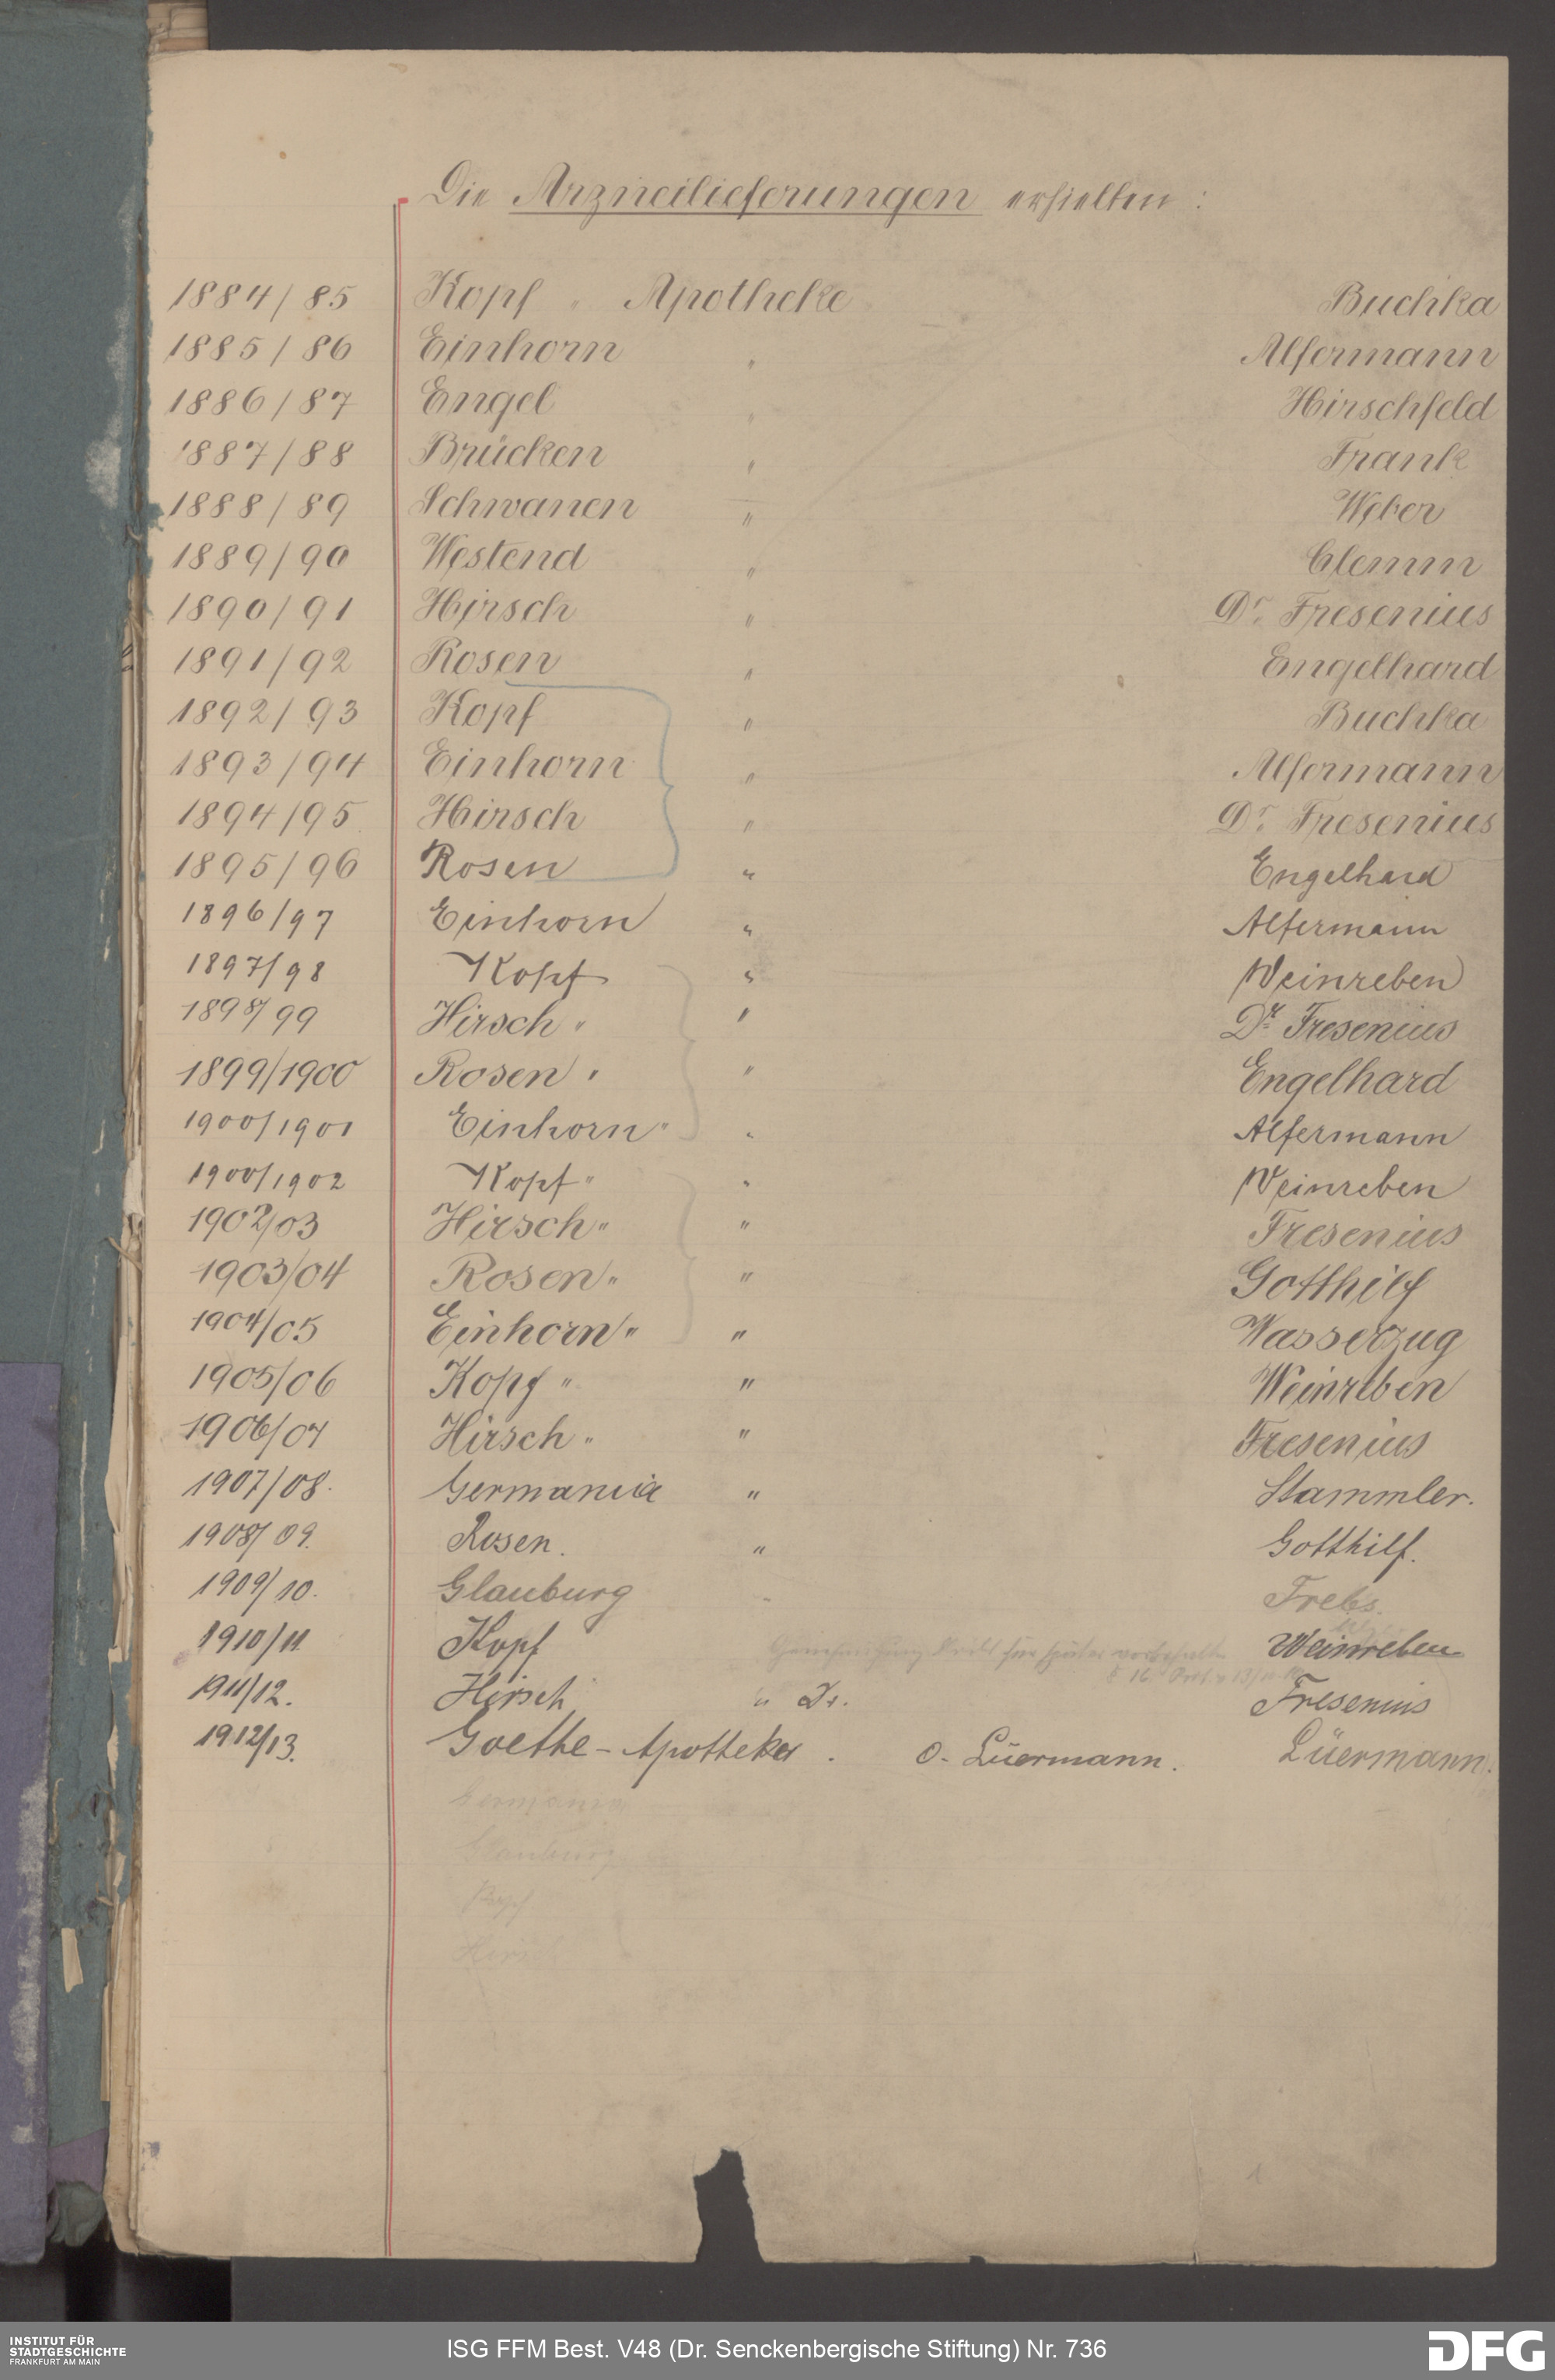 Die Arzneilieferungen erhielten :
1884/85 Kopf " Apotheke Buchka
1885/86 Einhorn " Alfermann
1886/87 Engel " Hirschfeld
1887/88 Brücken " Frank
1888/89 Schwanen " Weber
1889/90 Westend " Clemm
1890/91 Hirsch " Dr. Fresenius
1891/92 Rosen " Engelhard
1892/93 Kopf " Buchka
1893/94 Einhorn " Alfermann
1894/95 Hirsch " Dr. Fresenius
1895/96 Rosen " Engelhard
1896/97 Einhorn " Alfermann
1897/98 Kopf " Weinreben
1898/99 Hirsch " " Dr. Fresenius
1899/1900 Rosen " " Engelhard
1900/1901 Einhorn " " Alfermann
1900/1902 Kopf " " Weinreben
1902/03 Hirsch " " Fresenius
1903/04 Rosen " " Gotthilf
1904/05 Einhorn " " Wasserzug
1905/06 Kopf " " Weinreben
1906/07 Hirsch " " Fresenius
1907/08. Germania " Stammler.
1908/09. Rosen. " Gotthilf.
1909/10. Glauburg Frebs.
1910/11. Kopf für später Weinreben
§ 16
1911/12. Hirsch " Dr. Fresenius
1912/13. Goethe-Apotheker . O. Lüermann. Lüermann.
Germania
Glauburg
Kopf
Hirsch
1
INSTITUT FÜR
STADTGESCHICHTE
FRANKFURT AM MAIN
ISG FFM Best. V48 (Dr. Senckenbergische Stiftung) Nr. 736
DFG